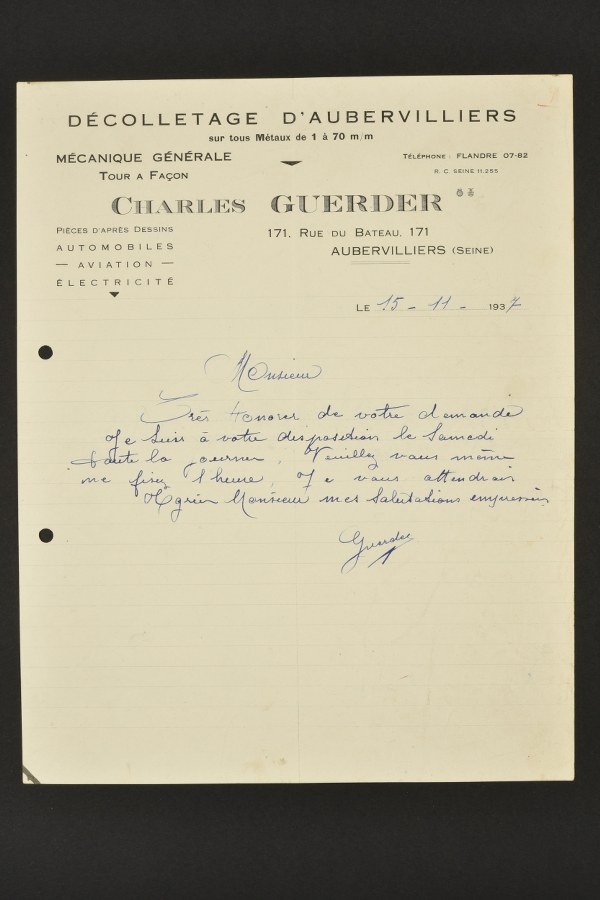 DÉCOLLETAGE D'AUBERVILLIERS
sur tous Métaux de 1 à 70 m/m
MÉCANIQUE GÉNÉRALE
TOUR A FAÇON
TÉLÉPHONE : FLANDRE 07-82
R. C. SEINE 11.255
CHARLES GUERDER
PIÈCES D'APRÈS DESSINS
AUTOMOBILES
— AVIATION —
ÉLECTRICITÉ
171, RUE DU BATEAU, 171
AUBERVILLIERS (SEINE)
LE 15 - 11 - 1937
Monsieur
Très honorer de votre demande
Je suis à votre disposition le Samedi
toute la journer, Veuillez vous même
me fixer l'heure, Je vous attendrais
Agréer Monsieur mes Salutations empressées
Guerder